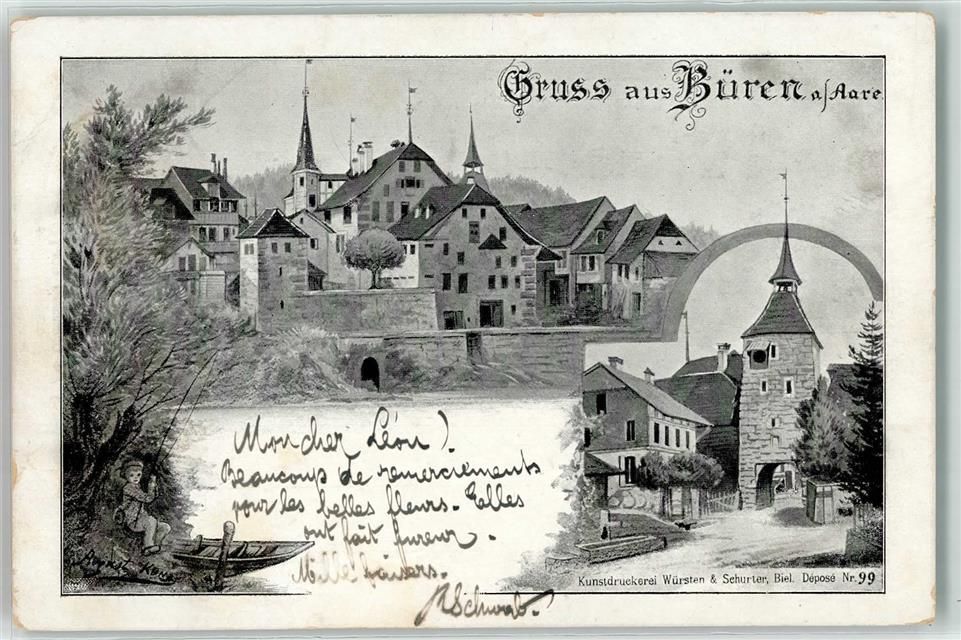 Gruss aus Büren a/Aare
Mon cher Léon!
Beaucoup de remerciements
pour les belles fleurs. Elles
ont fait fureur.
Mille baisers.
Schwab.
Kunstdruckerei Würsten & Schurter, Biel. Déposé Nr. 99